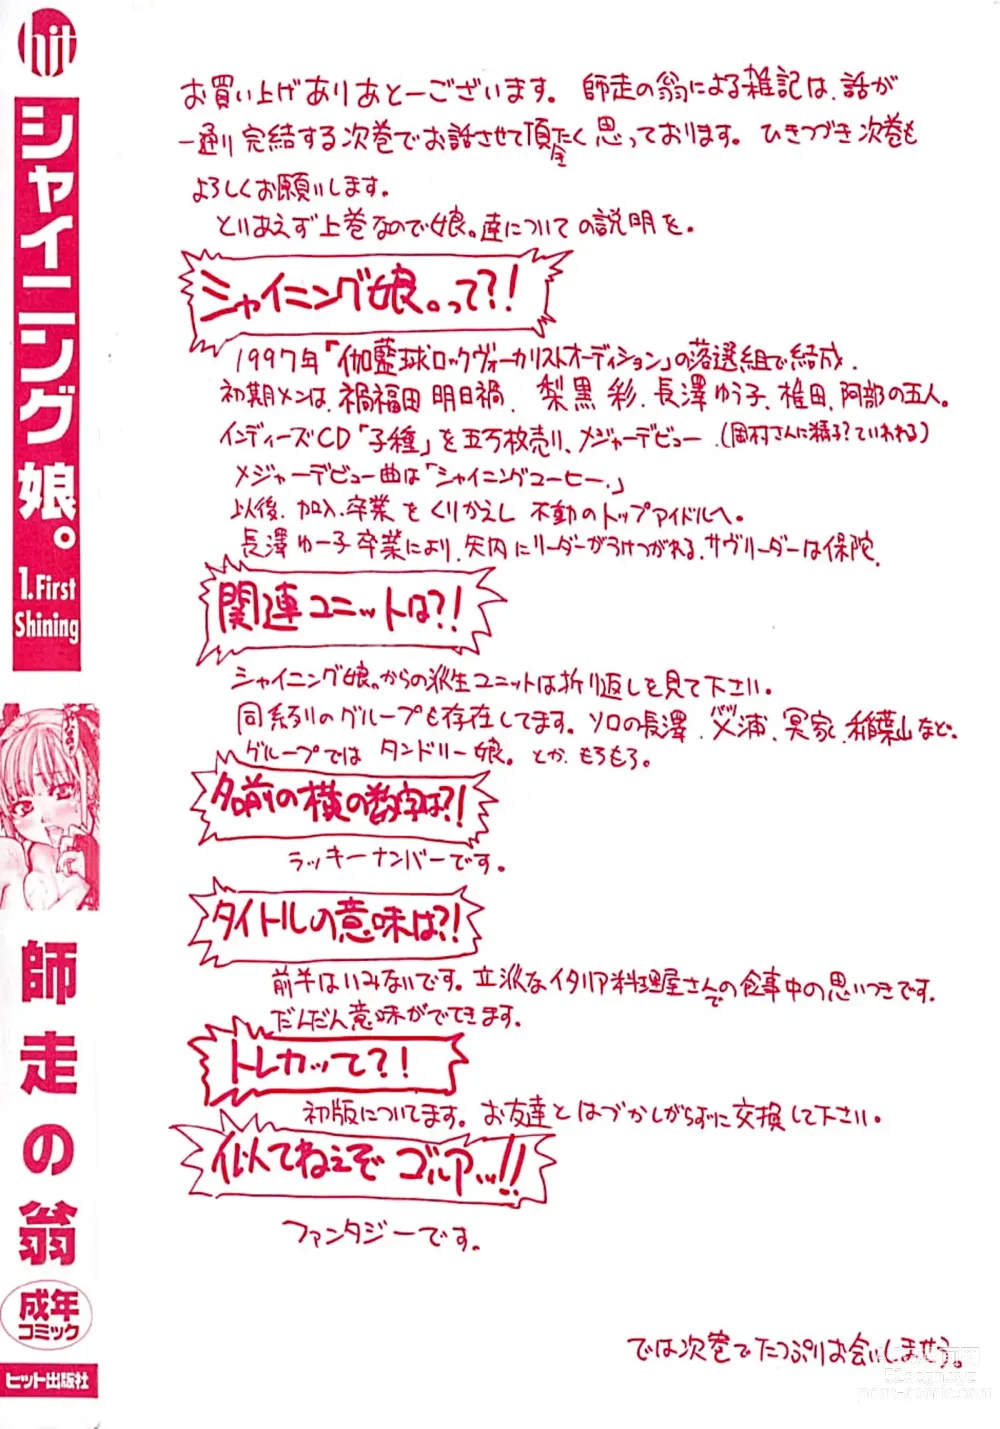 hit
シャイニング娘。
1.First
Shining
師走の翁
成年
コミック
ヒット出版社
お買い上げありあとーございます。 師走の翁による雑記は、話が
一通り完結する次巻でお話させて頂たく思っております。 ひきつづき次巻も
よろしくお願いします。
とりあえず上巻なので娘。達についての説明を。
シャイニング娘。って?!
1997年「伽藍球ロックヴォーカリストオーディション」の落選組で結成.
初期メンは、禍福田 明日禍、 梨黒 彩、長澤ゆう子、椎田、阿部の五人。
インディーズCD「子種」を五万枚売り、メジャーデビュー.(岡村さんに精子?ていわれる)
メジャーデビュー曲は「シャイニングコーヒー.」
以後、加入、卒業をくりかえし 不動のトップアイドルへ。
長澤ゆー子卒業により、矢内にリーダーがうけつがれる、サヴリーダーは保陀.
関連ユニットは?!
シャイニング娘。からの派生ユニットは折り返しを見て下さい.
同系列のグループも存在してます。ソロの長澤、浦、冥家、稲葉山など。
グループでは タンドリー娘。とか、もろもろ。
名前の横の数字は?!
ラッキーナンバーです。
タイトルの意味は?!
前半はいみないです。立派なイタリア料理屋さんでの食事中の思いつきです.
だんだん意味がでてきます.
トレカって?!
初版についてます。お友達とはづかしがらずに交換して下さい。
似てねぇぞ ゴルアッ!!
ファンタジーです。
では次巻でたっぷりお会いしませう。